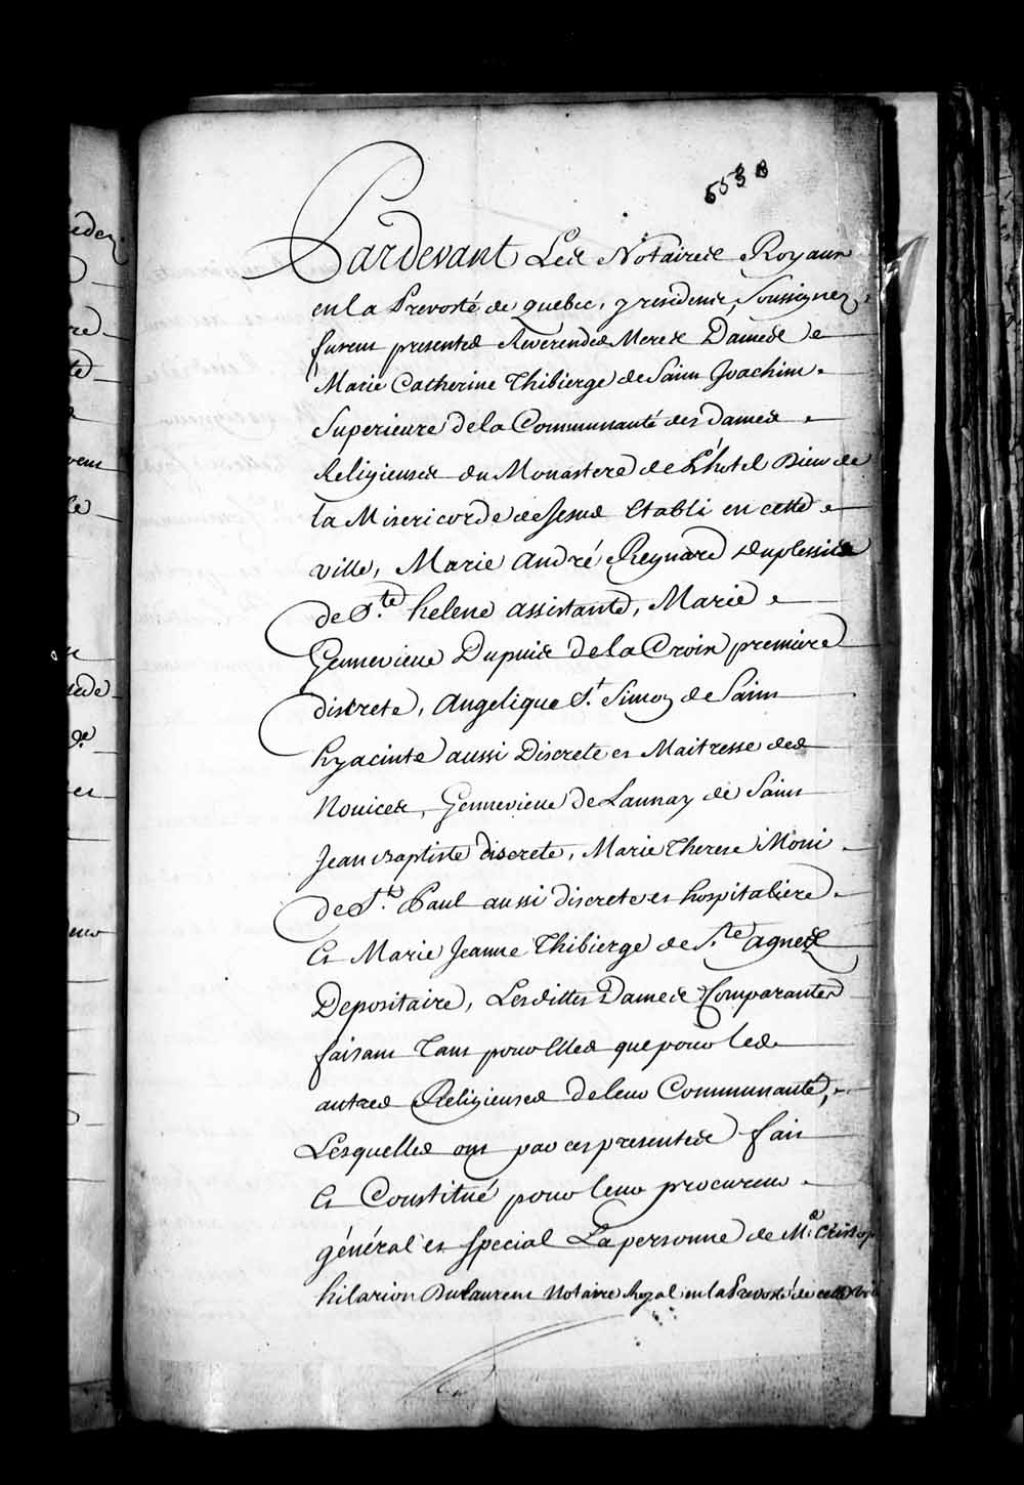 553 B
Pardevant Les Notaires Royaux
en la Prevosté de quebec, y residens, Soussignez,
furent presentes Reverendes Meres Dames
Marie Catherine Thibierge de Saint Joachim
Superieure de la Communauté des Dames
Religieuses du Monastere de L'hotel Dieu de
la Misericorde de Jesus Etabli en cette
ville, Marie André Regnard Duplessis
de Ste helene assistante, Marie
Gennevieve Dupuis de la Croix premiere
discrete, Angelique St Simon de Saint
hyacinte aussi Discrete et Maitresse des
Novices, Gennevieve de Launay de Saint
Jean Baptiste discrete, Marie Therese
de St. Paul aussi discrete et hospitaliere
Et Marie Jeanne Thibierge de Ste agnes
Depositaire, Lesdittes Dames Comparantes
faisant Tant pour Elles que pour les
autres Religieuses de leur Communauté,
Lesquelles ont par ces presentes fait
Et Constitué pour leur procureur
général et special La personne de Me
hilarion Dulaurent Notaire Royal en la Prevosté de cette